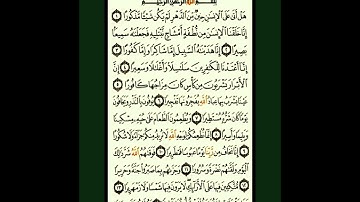 بِسْمِ ٱللَّهِ ٱلرَّحْمَٰنِ ٱلرَّحِيمِ
هَلْ أَتَىٰ عَلَى ٱلْإِنسَٰنِ حِينٌ مِّنَ ٱلدَّهْرِ لَمْ يَكُن شَيْـًٔا مَّذْكُورًا ١
إِنَّا خَلَقْنَا ٱلْإِنسَٰنَ مِن نُّطْفَةٍ أَمْشَاجٍ نَّبْتَلِيهِ فَجَعَلْنَٰهُ سَمِيعًۢا
بَصِيرًا ٢ إِنَّا هَدَيْنَٰهُ ٱلسَّبِيلَ إِمَّا شَاكِرًا وَإِمَّا كَفُورًا ٣
إِنَّآ أَعْتَدْنَا لِلْكَٰفِرِينَ سَلَٰسِلَا۟ وَأَغْلَٰلًا وَسَعِيرًا ٤ إِنَّ
ٱلْأَبْرَارَ يَشْرَبُونَ مِن كَأْسٍ كَانَ مِزَاجُهَا كَافُورًا ٥
عَيْنًا يَشْرَبُ بِهَا عِبَادُ ٱللَّهِ يُفَجِّرُونَهَا تَفْجِيرًا ٦ يُوفُونَ بِٱلنَّذْرِ وَيَخَافُونَ
يَوْمًا كَانَ شَرُّهُۥ مُسْتَطِيرًا ٧ وَيُطْعِمُونَ ٱلطَّعَامَ عَلَىٰ حُبِّهِۦ مِسْكِينًا
وَيَتِيمًا وَأَسِيرًا ٨ إِنَّمَا نُطْعِمُكُمْ لِوَجْهِ ٱللَّهِ لَا نُرِيدُ مِنكُمْ جَزَآءً وَلَا شُكُورًا
٩ إِنَّا نَخَافُ مِن رَّبِّنَا يَوْمًا عَبُوسًا قَمْطَرِيرًا ١٠ فَوَقَىٰهُمُ ٱللَّهُ شَرَّ ذَٰلِكَ
ٱلْيَوْمِ وَلَقَّىٰهُمْ نَضْرَةً وَسُرُورًا ١١ وَجَزَىٰهُم بِمَا صَبَرُوا۟ جَنَّةً وَحَرِيرًا ١٢
مُّتَّكِـِٔينَ فِيهَا عَلَى ٱلْأَرَآئِكِ لَا يَرَوْنَ فِيهَا شَمْسًا وَلَا زَمْهَرِيرًا ١٣